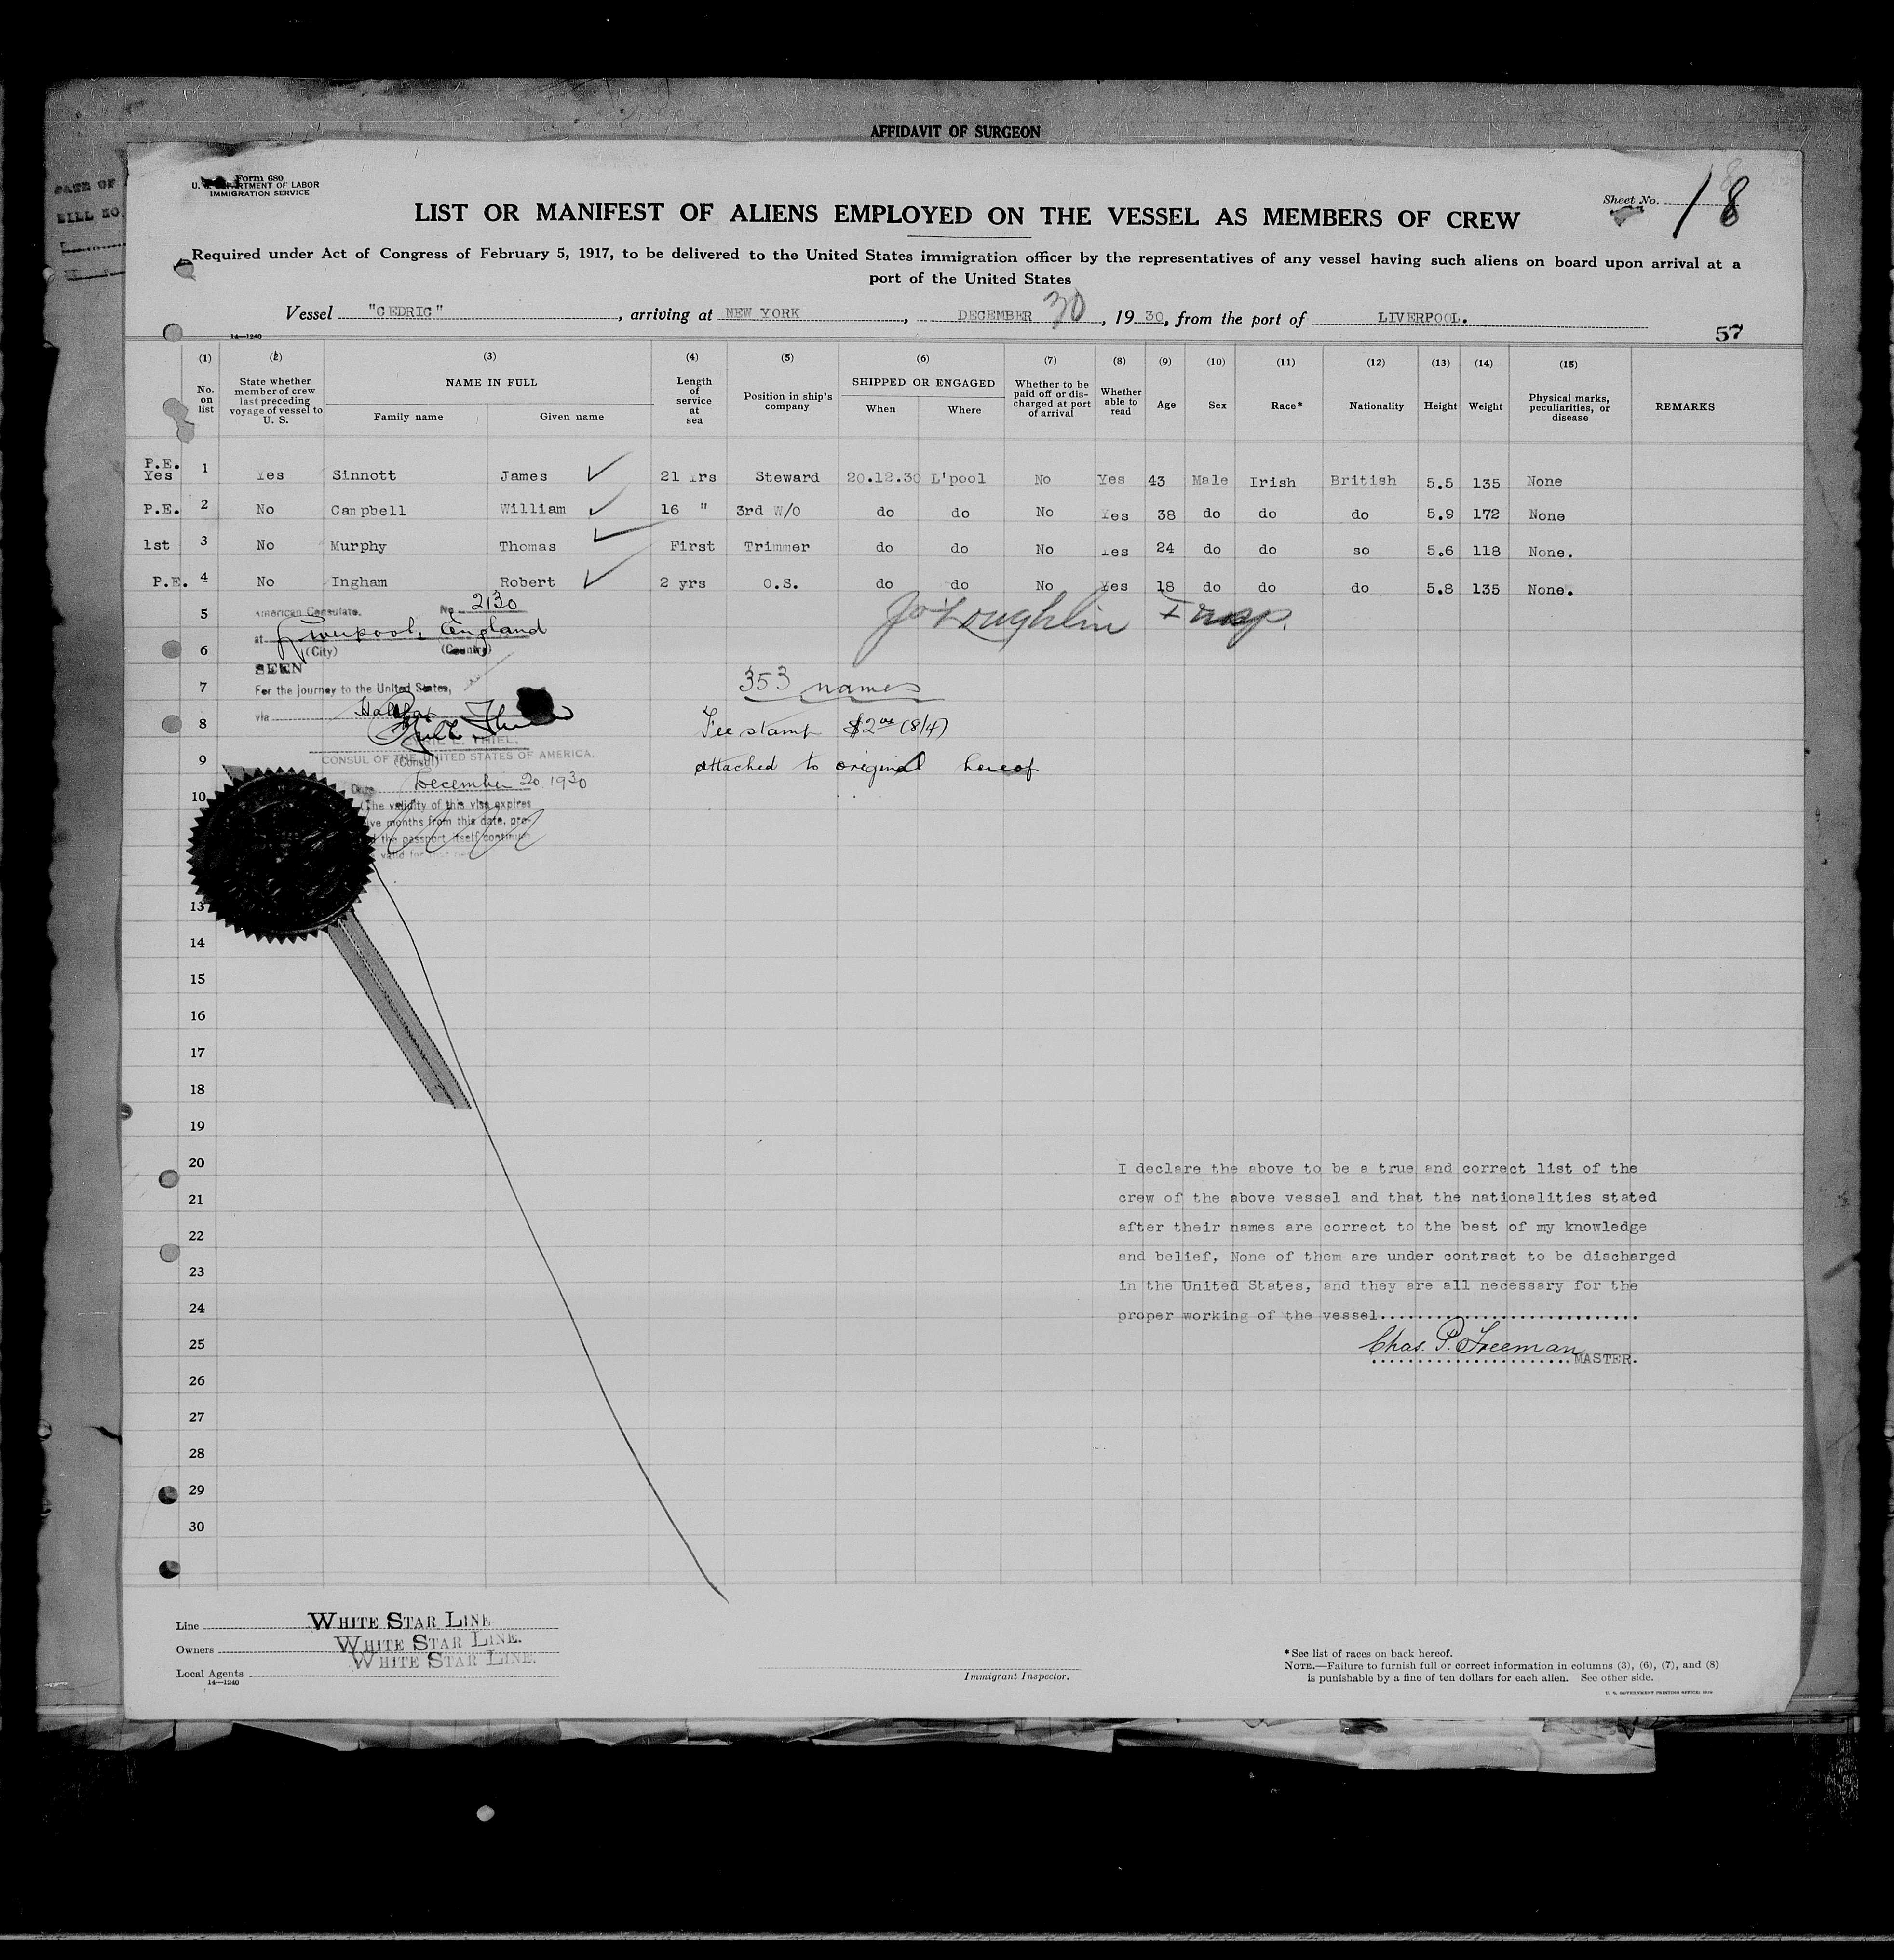 AFFIDAVIT OF SURGEON
DATE OF
BILL NO.
Form 680
U. S. DEPARTMENT OF LABOR
IMMIGRATION SERVICE
Sheet No. 18
LIST OR MANIFEST OF ALIENS EMPLOYED ON THE VESSEL AS MEMBERS OF CREW
Required under Act of Congress of February 5, 1917, to be delivered to the United States immigration officer by the representatives of any vessel having such aliens on board upon arrival at a
port of the United States
Vessel "CEDRIC", arriving at NEW YORK, DECEMBER 30, 1930, from the port of LIVERPOOL.
14—1240
57
(1) (2) (3) (4) (5) (6) (7) (8) (9) (10) (11) (12) (13) (14) (15)
No. on list State whether member of crew last preceding voyage of vessel to U. S. NAME IN FULL Family name Given name Length of service at sea Position in ship's company SHIPPED OR ENGAGED When Where Whether to be paid off or discharged at port of arrival Whether able to read Age Sex Race* Nationality Height Weight Physical marks, peculiarities, or disease REMARKS
P.E. Yes 1 Yes Sinnott James ✓ 21 yrs Steward 20.12.30 L'pool No Yes 43 Male Irish British 5.5 135 None
P.E. 2 No Campbell William ✓ 16 " 3rd W/O do do No Yes 38 do do do 5.9 172 None
1st 3 No Murphy Thomas ✓ First Trimmer do do No Yes 24 do do so 5.6 118 None.
P.E. 4 No Ingham Robert ✓ 2 yrs O.S. do do No Yes 18 do do do 5.8 135 None.
5 American Consulate. No 2130
at Liverpool, England
J O'Loughlin Insp.
6 (City) (Country)
SEEN
7 For the journey to the United States,
353 names
8 via Halifax
Fee stamp $2 00 (8/4)
9 CONSUL OF THE UNITED STATES OF AMERICA.
(Consul)
attached to original hereof
Date December 20, 1930
10 (The validity of this visa expires
ive months from this date, pro-
the passport itself continue
valid for
13
14
15
16
17
18
19
20
21
22
23
24
25
26
27
28
29
30
I declare the above to be a true and correct list of the
crew of the above vessel and that the nationalities stated
after their names are correct to the best of my knowledge
and belief, None of them are under contract to be discharged
in the United States, and they are all necessary for the
proper working of the vessel.
Chas. P. Freeman
MASTER.
Line WHITE STAR LINE
Owners WHITE STAR LINE.
Local Agents WHITE STAR LINE.
14—1240
Immigrant Inspector.
*See list of races on back hereof.
NOTE.—Failure to furnish full or correct information in columns (3), (6), (7), and (8)
is punishable by a fine of ten dollars for each alien. See other side.